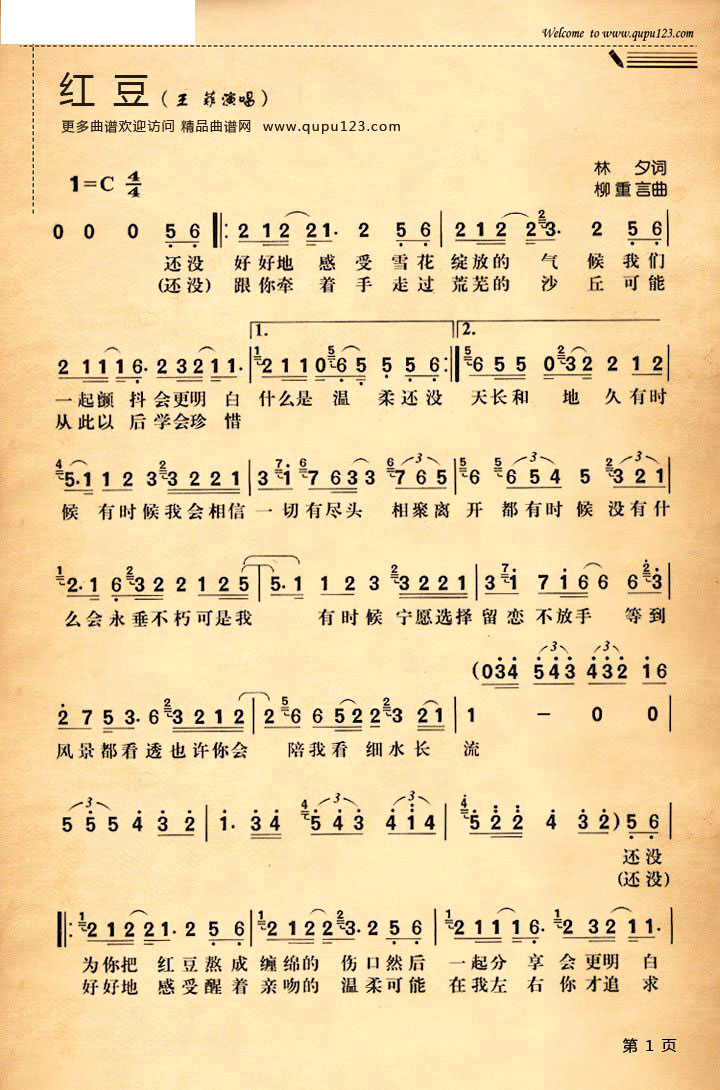 Welcome to www.qupu123.com
红 豆 （王 菲演唱）
更多曲谱欢迎访问 精品曲谱网 www.qupu123.com
林 夕词
1=C 4/4
柳重言曲
0 0 0 5 6 2 1 2 2 1. 2 5 6 2 1 2 2 2 3. 2 5 6
还没 好好地 感受雪花绽放的 气候我们
(还没) 跟你牵着手走过荒芜的 沙丘可能
1.
2.
2 1 1 1 6. 2 3 2 1 1. 2 1 1 0 6 5 5 5 6 6 5 5 0 3 2 2 1 2
一起颤抖会更明白什么是温柔还没天长和地久有时
从此以后学会珍惜
5. 1 1 2 3 3 2 2 1 3 1 7 6 3 3 7 6 5 6 6 5 4 5 3 2 1
候有时候我会相信一切有尽头相聚离开都有时候没有什
2. 1 6 3 2 2 1 2 5 5. 1 1 2 3 3 2 2 1 3 1 7 1 6 6 6 3
么会永垂不朽可是我 有时候宁愿选择留恋不放手等到
(0 3 4 5 4 3 4 3 2 1 6
2 7 5 3. 6 3 2 1 2 2 6 6 5 2 2 2 3 2 1 1 – 0 0
风景都看透也许你会 陪我看细水长流
5 5 5 4 3 2 1. 3 4 5 4 3 4 1 4 5 2 2 4 3 2) 5 6
还没
(还没)
2 1 2 2 1. 2 5 6 2 1 2 2 3. 2 5 6 2 1 1 1 6. 2 3 2 1 1.
为你把 红豆熬成缠绵的 伤口然后一起分享会更明白
好好地 感受醒着亲吻的 温柔可能在我左右你才追求
第 1 页